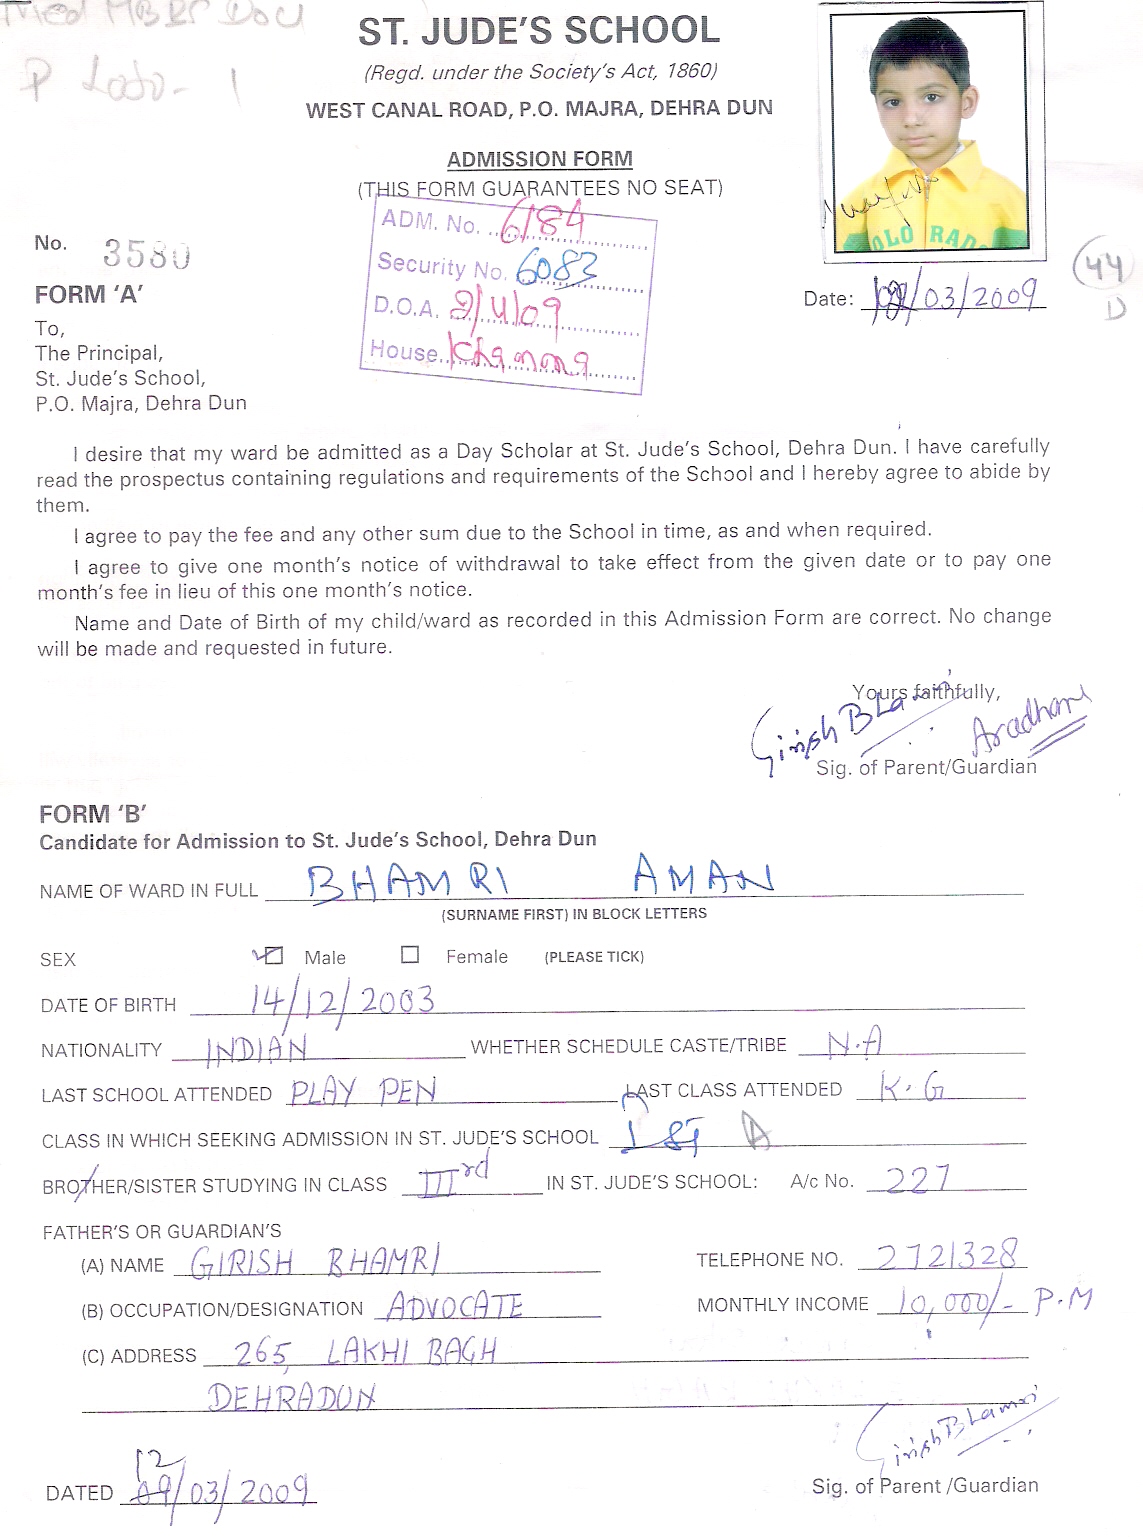 P
ST. JUDE'S SCHOOL
(Regd. under the Society's Act, 1860)
WEST CANAL ROAD, P.O. MAJRA, DEHRA DUN
ADMISSION FORM
(THIS FORM GUARANTEES NO SEAT)
ADM. No. 6184
Security No. 6083
D.O.A. 2/4/09
House
No. 3580
44
D
Date: /03/2009
FORM 'A'
To,
The Principal,
St. Jude's School,
P.O. Majra, Dehra Dun
I desire that my ward be admitted as a Day Scholar at St. Jude's School, Dehra Dun. I have carefully
read the prospectus containing regulations and requirements of the School and I hereby agree to abide by
them.
I agree to pay the fee and any other sum due to the School in time, as and when required.
I agree to give one month's notice of withdrawal to take effect from the given date or to pay one
month's fee in lieu of this one month's notice.
Name and Date of Birth of my child/ward as recorded in this Admission Form are correct. No change
will be made and requested in future.
Yours faithfully,
Girish Bhamri Aradhana
Sig. of Parent/Guardian
FORM 'B'
Candidate for Admission to St. Jude's School, Dehra Dun
NAME OF WARD IN FULL BHAMRI AMAN
(SURNAME FIRST) IN BLOCK LETTERS
SEX Male Female (PLEASE TICK)
DATE OF BIRTH 14/12/2003
NATIONALITY INDIAN WHETHER SCHEDULE CASTE/TRIBE N.A
LAST SCHOOL ATTENDED PLAY PEN LAST CLASS ATTENDED K.G
CLASS IN WHICH SEEKING ADMISSION IN ST. JUDE'S SCHOOL I St A
BROTHER/SISTER STUDYING IN CLASS IIIrd IN ST. JUDE'S SCHOOL: A/c No. 227
FATHER'S OR GUARDIAN'S
(A) NAME GIRISH BHAMRI TELEPHONE NO. 2721328
(B) OCCUPATION/DESIGNATION ADVOCATE MONTHLY INCOME 10,000/- P.M
(C) ADDRESS 265, LAKHI BAGH
DEHRADUN
Girish Bhamri
Sig. of Parent /Guardian
12
DATED 09/03/2009